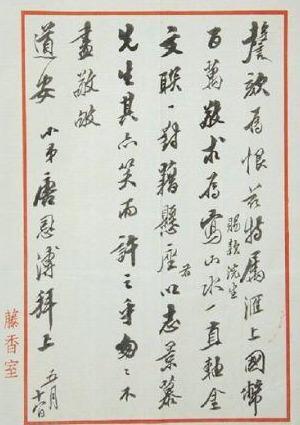 謦欬為恨茲特屬滙上國幣
百萬敬求為寫山水一直軸金
賜款浣生
文聯一對藉懸座以志景慕
右
先生其亦笑而許之乎匆々不
盡敬敂
道安 小弟唐慰溥拜上 五月十一日
藤香室